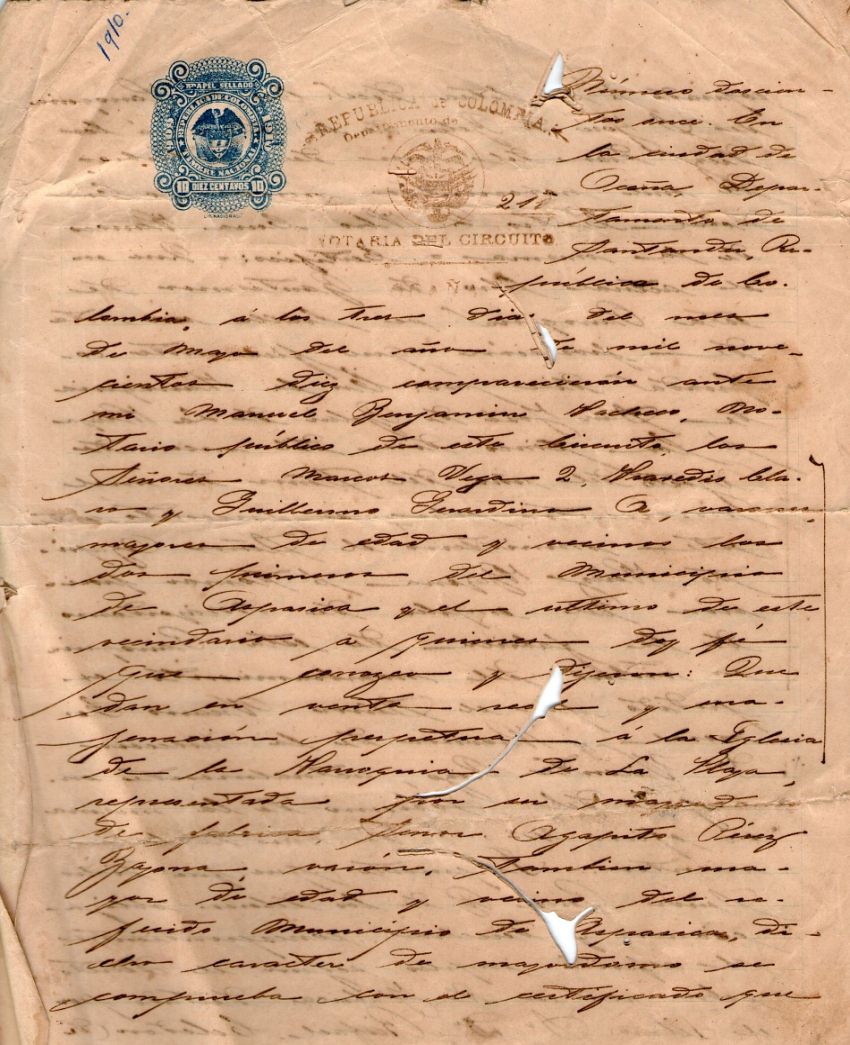 1910.
PAPEL SELLADO
REPUBLICA DE COLOMBIA
TIMBRE NACIONAL
10 DIEZ CENTAVOS 10
LIT. NACIONAL
REPUBLICA DE COLOMBIA
Departamento de
NOTARIA DEL CIRCUITO
Número doscien-
tos once. En
la ciudad de
Ocaña, Depar-
tamento de
Santander, Re-
pública de Co-
lombia, á los tres dias del mes
de Mayo del año de mil nove-
cientos diez comparecieron ante
mi Manuel Benjamin Pacheco, No-
tario público de este Circuito, los
Señores Marcos Vega 2, Cla-
ro y Guillermo Gerardino A, varones
mayores de edad y vecinos los
dos primeros del Municipio
de Aspasica y el ultimo de este
vecindario á quienes doy fé
que conozco y dijeron: Que
dan en venta real y ena-
jenación perpetua á la Iglesia
de la Parroquia de La Playa,
representada por su mayordomo
de fabrica, Señor Agapito Pérez
varón, tambien ma-
yor de edad y vecino del re-
ferido Municipio de Aspasica, di-
cho caracter de mayordomo se
comprueba con el certificado que